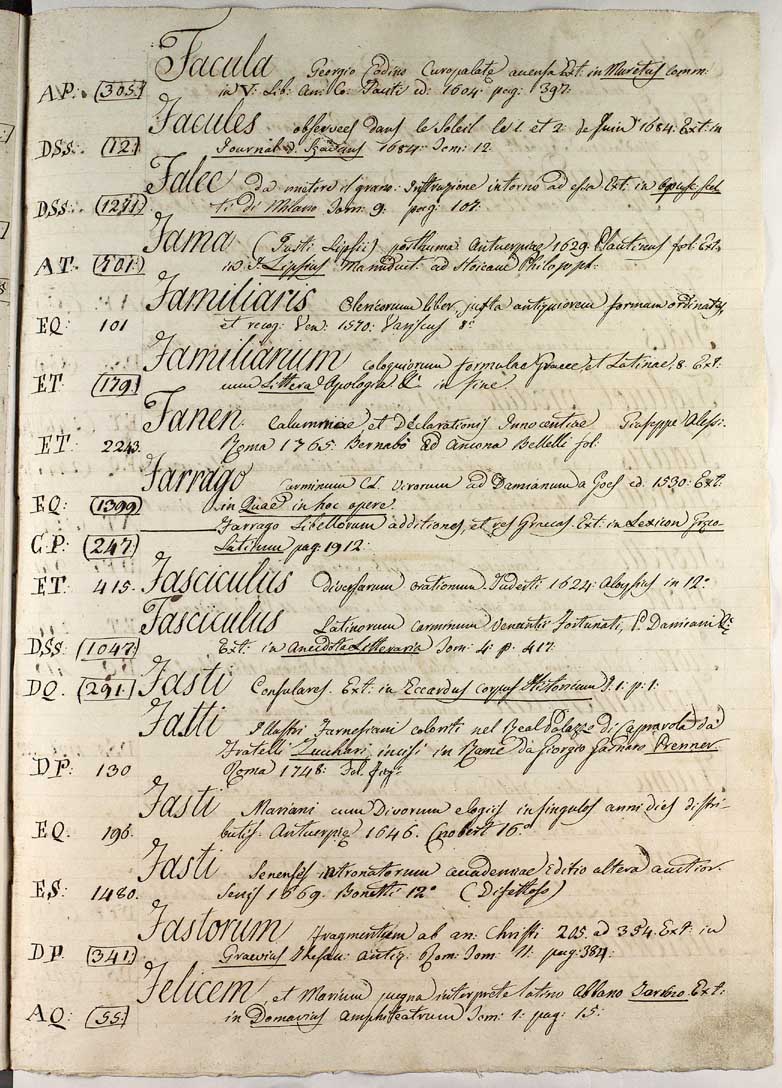 Facula Georgio Codino Curopalatę auensa Ext: in Muretus comm:
AP: (305.) in V: Lib: An: Co: Pauti ed: 1604. pag: 397.
Facules observées dans le Soleil les 1. et 2. de Juin 1684: Ext: in
DSS: (12.) Journal d. Sçavans 1684: Tom: 12.
Falce da mietere il grano: Istruzione intorno ad essa Ext: in Opusc. scel-
DSS: (1271.) ti di Milano Tom: 9: pag: 107.
Fama (Justi Lipsii) posthuma: Antuerpiae 1629. Plautinus fol: Ext:
AT: (701.) in J. Lipsius Manuduct: ad Stoicam Philosoph:
Familiaris Clericorum liber juxta antiquiorem formam ordinatus,
EQ: 101 et recog: Ven: 1570: Variscus 8°
Familiarium coloquiorum formulae Graece, et Latinae, 8. Ext:
ET: (179.) cum Littera Apologia &c in fine.
Fanen: Calumniae, et Declarationis Innocentiae Giuseppe Alessi.
ET: 2243. Roma 1765. Bernabò ad Ancona Bellelli fol:
Farrago Carminum Cl. Virorum ad Damianum a Goes ed: 1530: Ext:
EQ: (1399) in Quaed in hoc opere.
Farrago Libellorum additiones, et res Graecas. Ext: in Lexicon Gręco
C.P: (247) Latinum pag: 1912:
ET: 415. Fasciculus diversarum orationum. Tuderti 1624: Aloysius in 12°
Fasciculus Latinorum carminum Venantii Fortunati, P. Damiani &c
DSS: (1047) Ext: in Anecdota Litteraria Tom: 4: p: 417.
DQ. (291.) Fasti Consulares. Ext: in Eccardus corpus Historicum T: 1: p: 1:
Fatti Illustri Farnesiani coloriti nel Real Palazzo di Caprarola da
Fratelli Zuccheri, incisi in Rame da Giorgio Gasparo Prenner.
DP: 130 Roma 1748: fol. fig:
Fasti Mariani cum Divorum elogiis in singulos anni dies distri-
EQ: 196. butis. Antuerpię 1646. Cnobert 16°
Fasti Senenses intronatorum academiae editio altera auctior.
ES: 1480. Senis 1669. Bonetti 12° (Difettoso)
Fastorum fragmentum ab an: Christi 205. ad 354. Ext: in
DP. (341.) Graevius Thesau: antiq: Rom: Tom: 11: pag: 384.
Felicem, et Marium pugna interprete latino abbano Ext:
AQ: (55.) in Domavius Amphiteatrum Tom: 1: pag: 15: